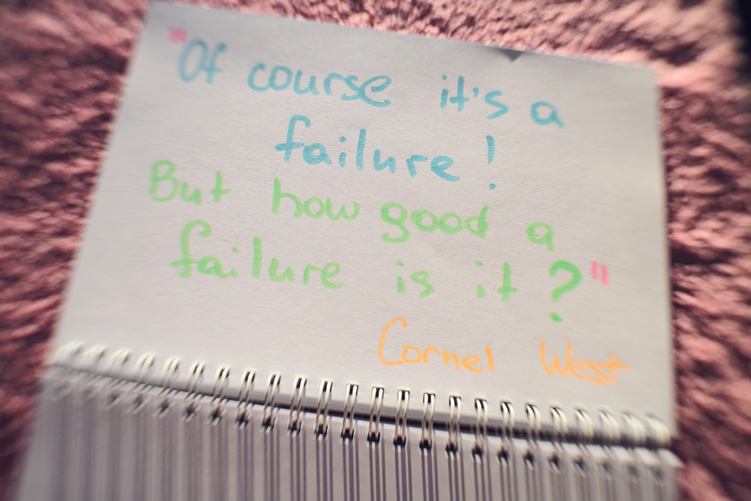 "Of course it's a
failure!
But how good a
failure is it?"
Cornel West